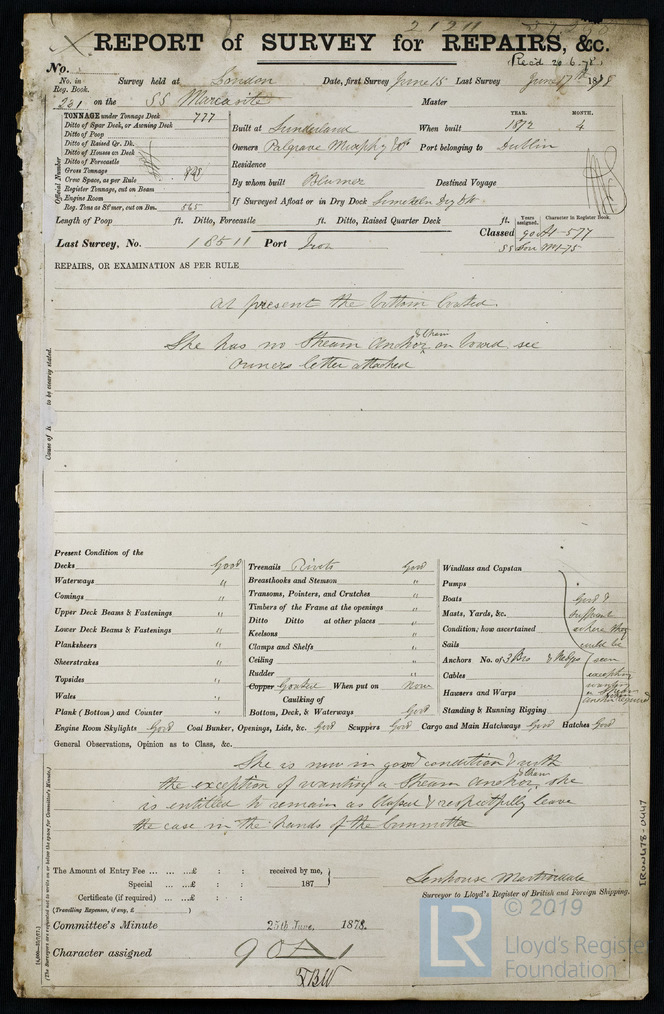 21211
REPORT of SURVEY for REPAIRS, &c.
No.
(Rec'd 20.6.78)
No. in Reg. Book. Survey held at London Date, first Survey June 15 Last Survey June 17th 1878
221 on the SS Marcasite Master
TONNAGE under Tonnage Deck 777
Ditto of Spar Deck, or Awning Deck
Ditto of Poop
Ditto of Raised Qr. Dk.
Ditto of Houses on Deck
Ditto of Forecastle
Gross Tonnage
Crew Space, as per Rule
Register Tonnage, cut on Beam
Engine Room
Reg. Tons as St'mer, cut on Bm. 565
Official Number
YEAR. MONTH.
Built at Sunderland When built 1872 4
Owners Palgrave Murphy & Co Port belonging to Dublin
Residence
By whom built Blumer Destined Voyage
If Surveyed Afloat or in Dry Dock Limekiln Dry Dk
Length of Poop ft. Ditto, Forecastle ft. Ditto, Raised Quarter Deck ft.
Years assigned. Character in Register Book.
Classed 90A1-5,77
SS Lon No1-75
Last Survey, No. 18511 Port Iron
REPAIRS, OR EXAMINATION AS PER RULE
At present the bottom coated.
She has no Stream Anchor & Chain on board see
Owners letter attached
Cause of to be clearly stated.
Present Condition of the
Decks Good
Waterways "
Comings "
Upper Deck Beams & Fastenings "
Lower Deck Beams & Fastenings "
Planksheers "
Sheerstrakes "
Topsides "
Wales "
Plank (Bottom) and Counter "
Treenails Rivets Good
Breasthooks and Stemson "
Transoms, Pointers, and Crutches "
Timbers of the Frame at the openings "
Ditto Ditto at other places "
Keelsons "
Clamps and Shelfs "
Ceiling "
Rudder "
Copper Coated When put on Now
Caulking of
Bottom, Deck, & Waterways Good
Windlass and Capstan
Pumps
Boats
Masts, Yards, &c.
Condition; how ascertained
Sails
Anchors No. of 3 Bws & Kedges
Cables
Hawsers and Warps
Standing & Running Rigging
Good &
sufficient
where they
could be
seen
excepting
wanting
a Stream
anchor required
Engine Room Skylights Good Coal Bunker, Openings, Lids, &c. Good Scuppers Good Cargo and Main Hatchways Good Hatches Good
General Observations, Opinion as to Class, &c.
She is now in good condition & with
the exception of wanting a Stream Anchor & Chain, she
is entitled to remain as Classed & respectfully leave
the case in the hands of the Committee
The Amount of Entry Fee £ : : received by me,
Special £ : : 187
Certificate (if required) £ : :
(Travelling Expenses, if any, £ )
Senhouse Martindale
Surveyor to Lloyd's Register of British and Foreign Shipping.
Committee's Minute 25th June, 1878.
Character assigned 90A1
TBW
(The Surveyors are requested not to write on or below the space for Committee's Minute.)
IRON478-0447
© 2019
LR Lloyd's Register
Foundation